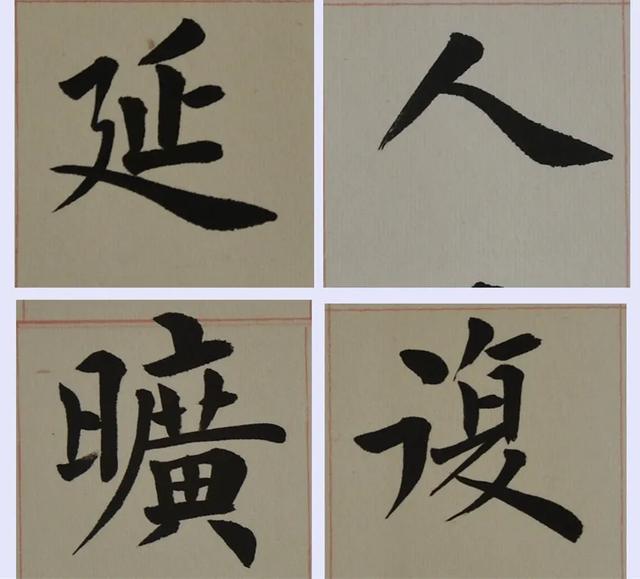 延人
曠復